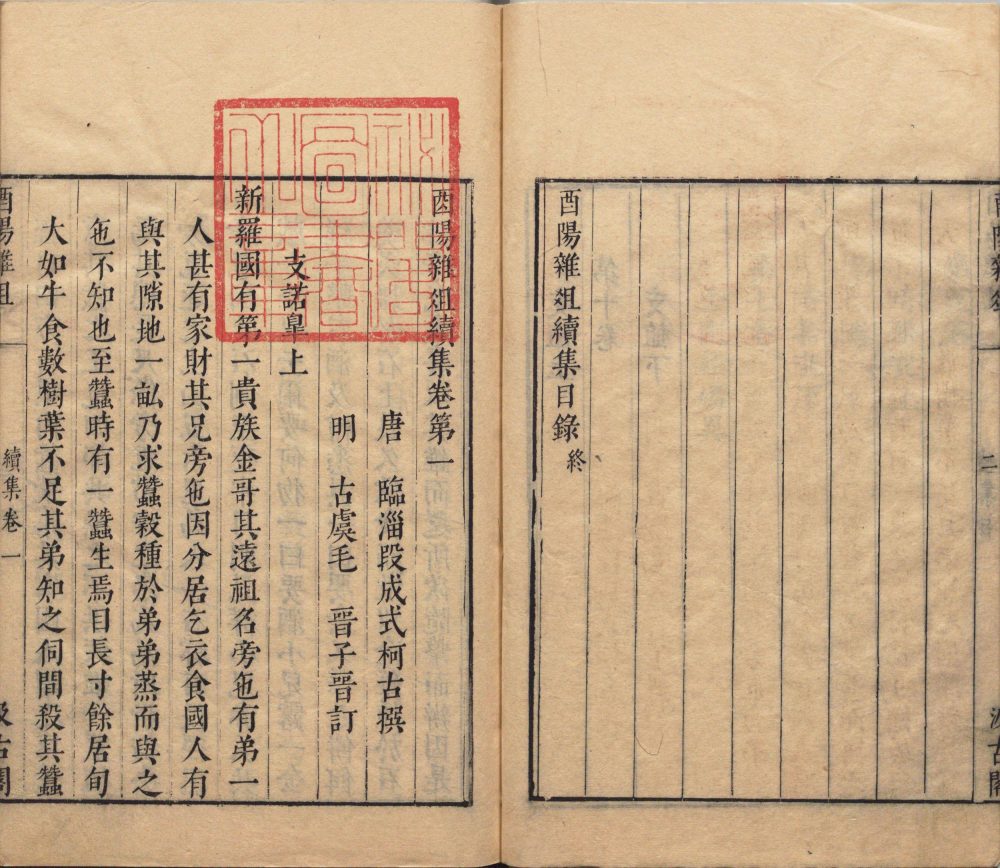 酉陽雜俎 二 汲古閣
酉陽雜俎續集目錄 終
酉陽雜俎續集卷第一
唐 臨淄段成式柯古撰
明 古虞毛 晉子晉訂
支諾皐上
新羅國有第一貴族金哥其遠祖名旁㐌有弟一
人甚有家財其兄旁㐌因分居乞衣食國人有
與其隙地一畆乃求蠶穀種於弟弟蒸而與之
㐌不知也至蠶時有一蠶生焉目長寸餘居旬
大如牛食數樹葉不足其弟知之伺間殺其蠶
酉陽雜俎 續集卷一 汲古閣